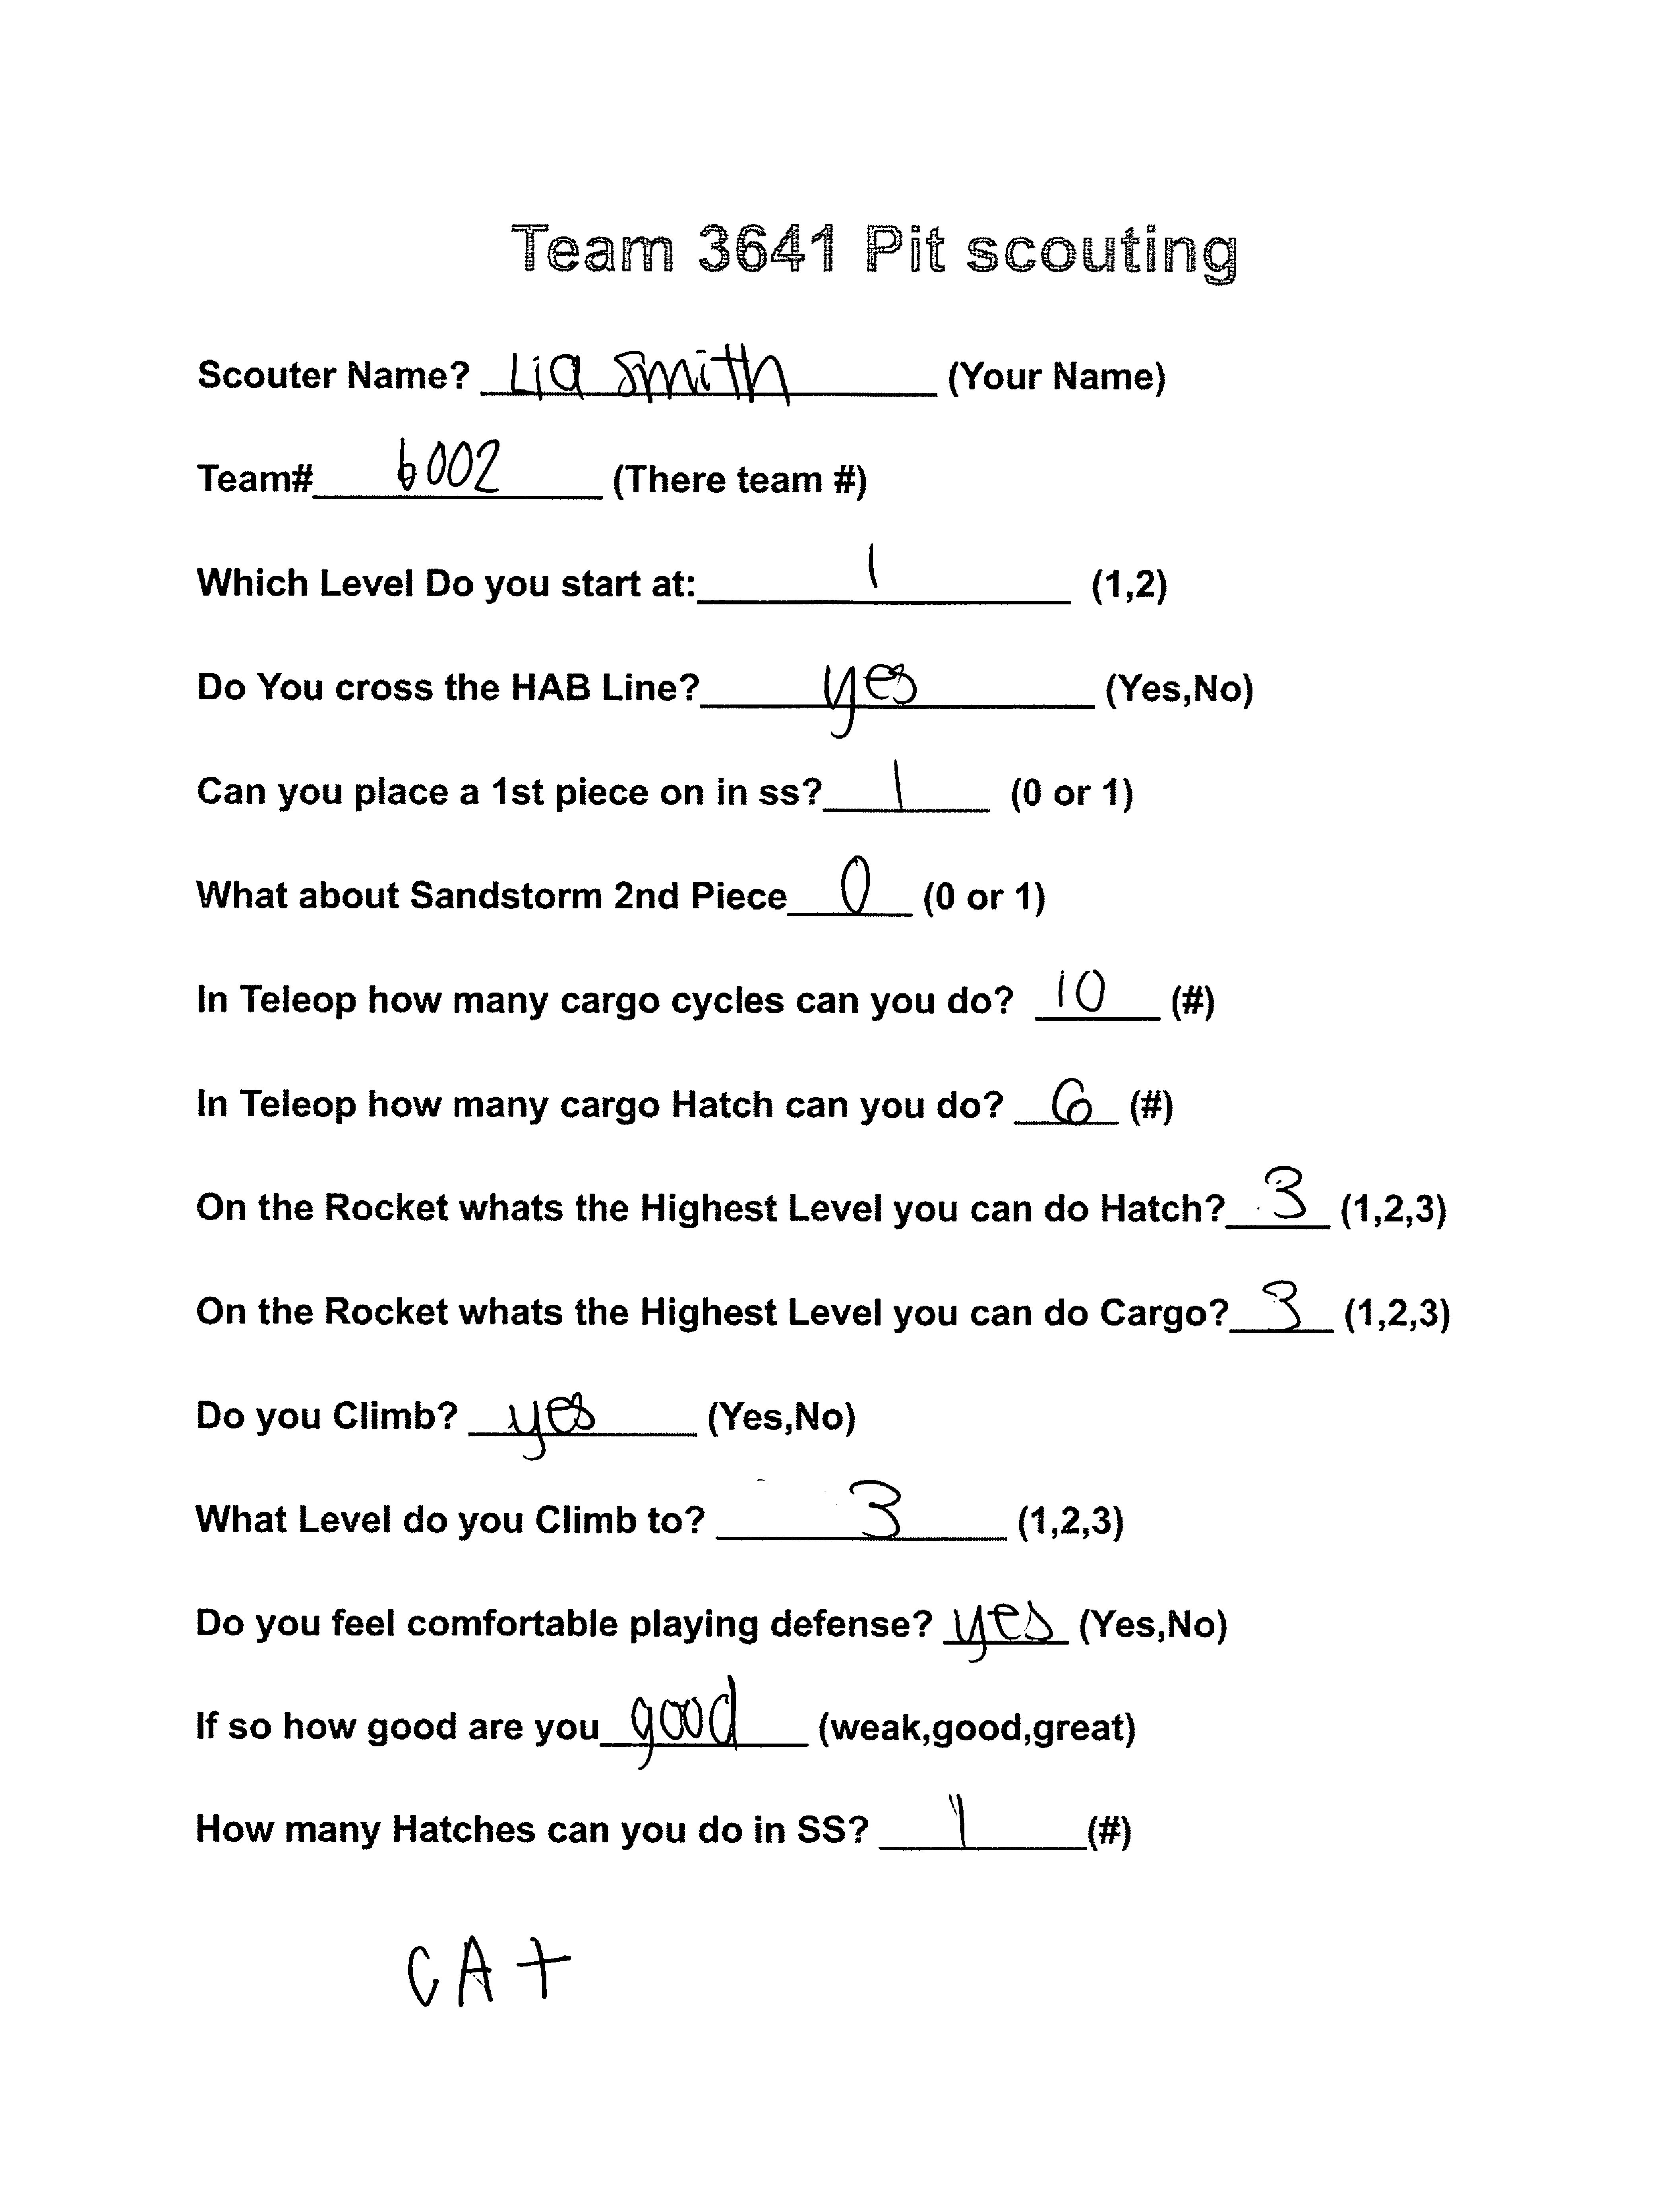 Team 3641 Pit scouting
Scouter Name? Lia Smith (Your Name)
Team# 6002 (There team #)
Which Level Do you start at: 1 (1,2)
Do You cross the HAB Line? yes (Yes,No)
Can you place a 1st piece on in ss? 1 (0 or 1)
What about Sandstorm 2nd Piece 0 (0 or 1)
In Teleop how many cargo cycles can you do? 10 (#)
In Teleop how many cargo Hatch can you do? 6 (#)
On the Rocket whats the Highest Level you can do Hatch? 3 (1,2,3)
On the Rocket whats the Highest Level you can do Cargo? 3 (1,2,3)
Do you Climb? yes (Yes,No)
What Level do you Climb to? 3 (1,2,3)
Do you feel comfortable playing defense? yes (Yes,No)
If so how good are you good (weak,good,great)
How many Hatches can you do in SS? 1 (#)
CAt